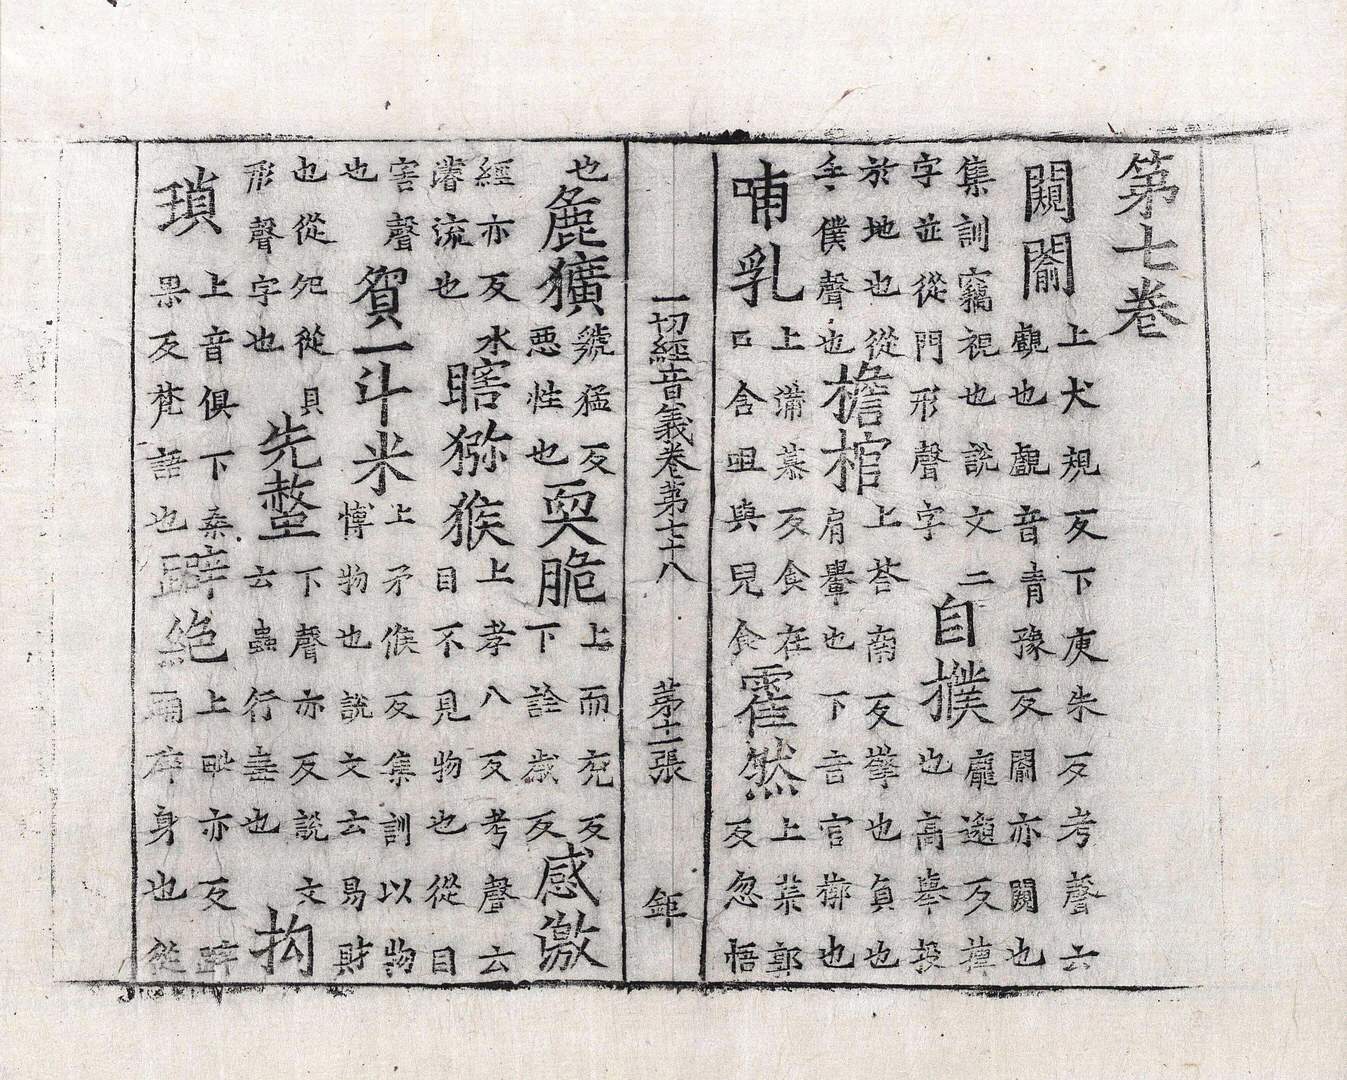 第七卷
闚𨵦上犬規反下庾朱反考聲云覰也覰音青豫反𨵦亦闚也
集訓竊視也說文二字並從門形聲字自撲龐邈反也高舉投
於地也從手僕聲也檐棺上荅南反擎也負也肩轝也下音官槨也
哺乳上蒲慕反食在口含咀與兒食霍然上荒郭反忽悟
一切經音義卷第七十八 苐十二張 鉅
也麁獷虢猛反悪性也耎脆上而兖反下詮歲反感激
經亦反水濬流也瞎獼猴上孝八反考聲云目不見物也從目
害聲也貿一斗米上矛候反集訓以物博物也說文云易財
也從夗從貝形聲字也先螫下聲亦反說文云蟲行毒也拘
瑣上音俱下桑果反梵語也躃絶上毗亦反躃身也從